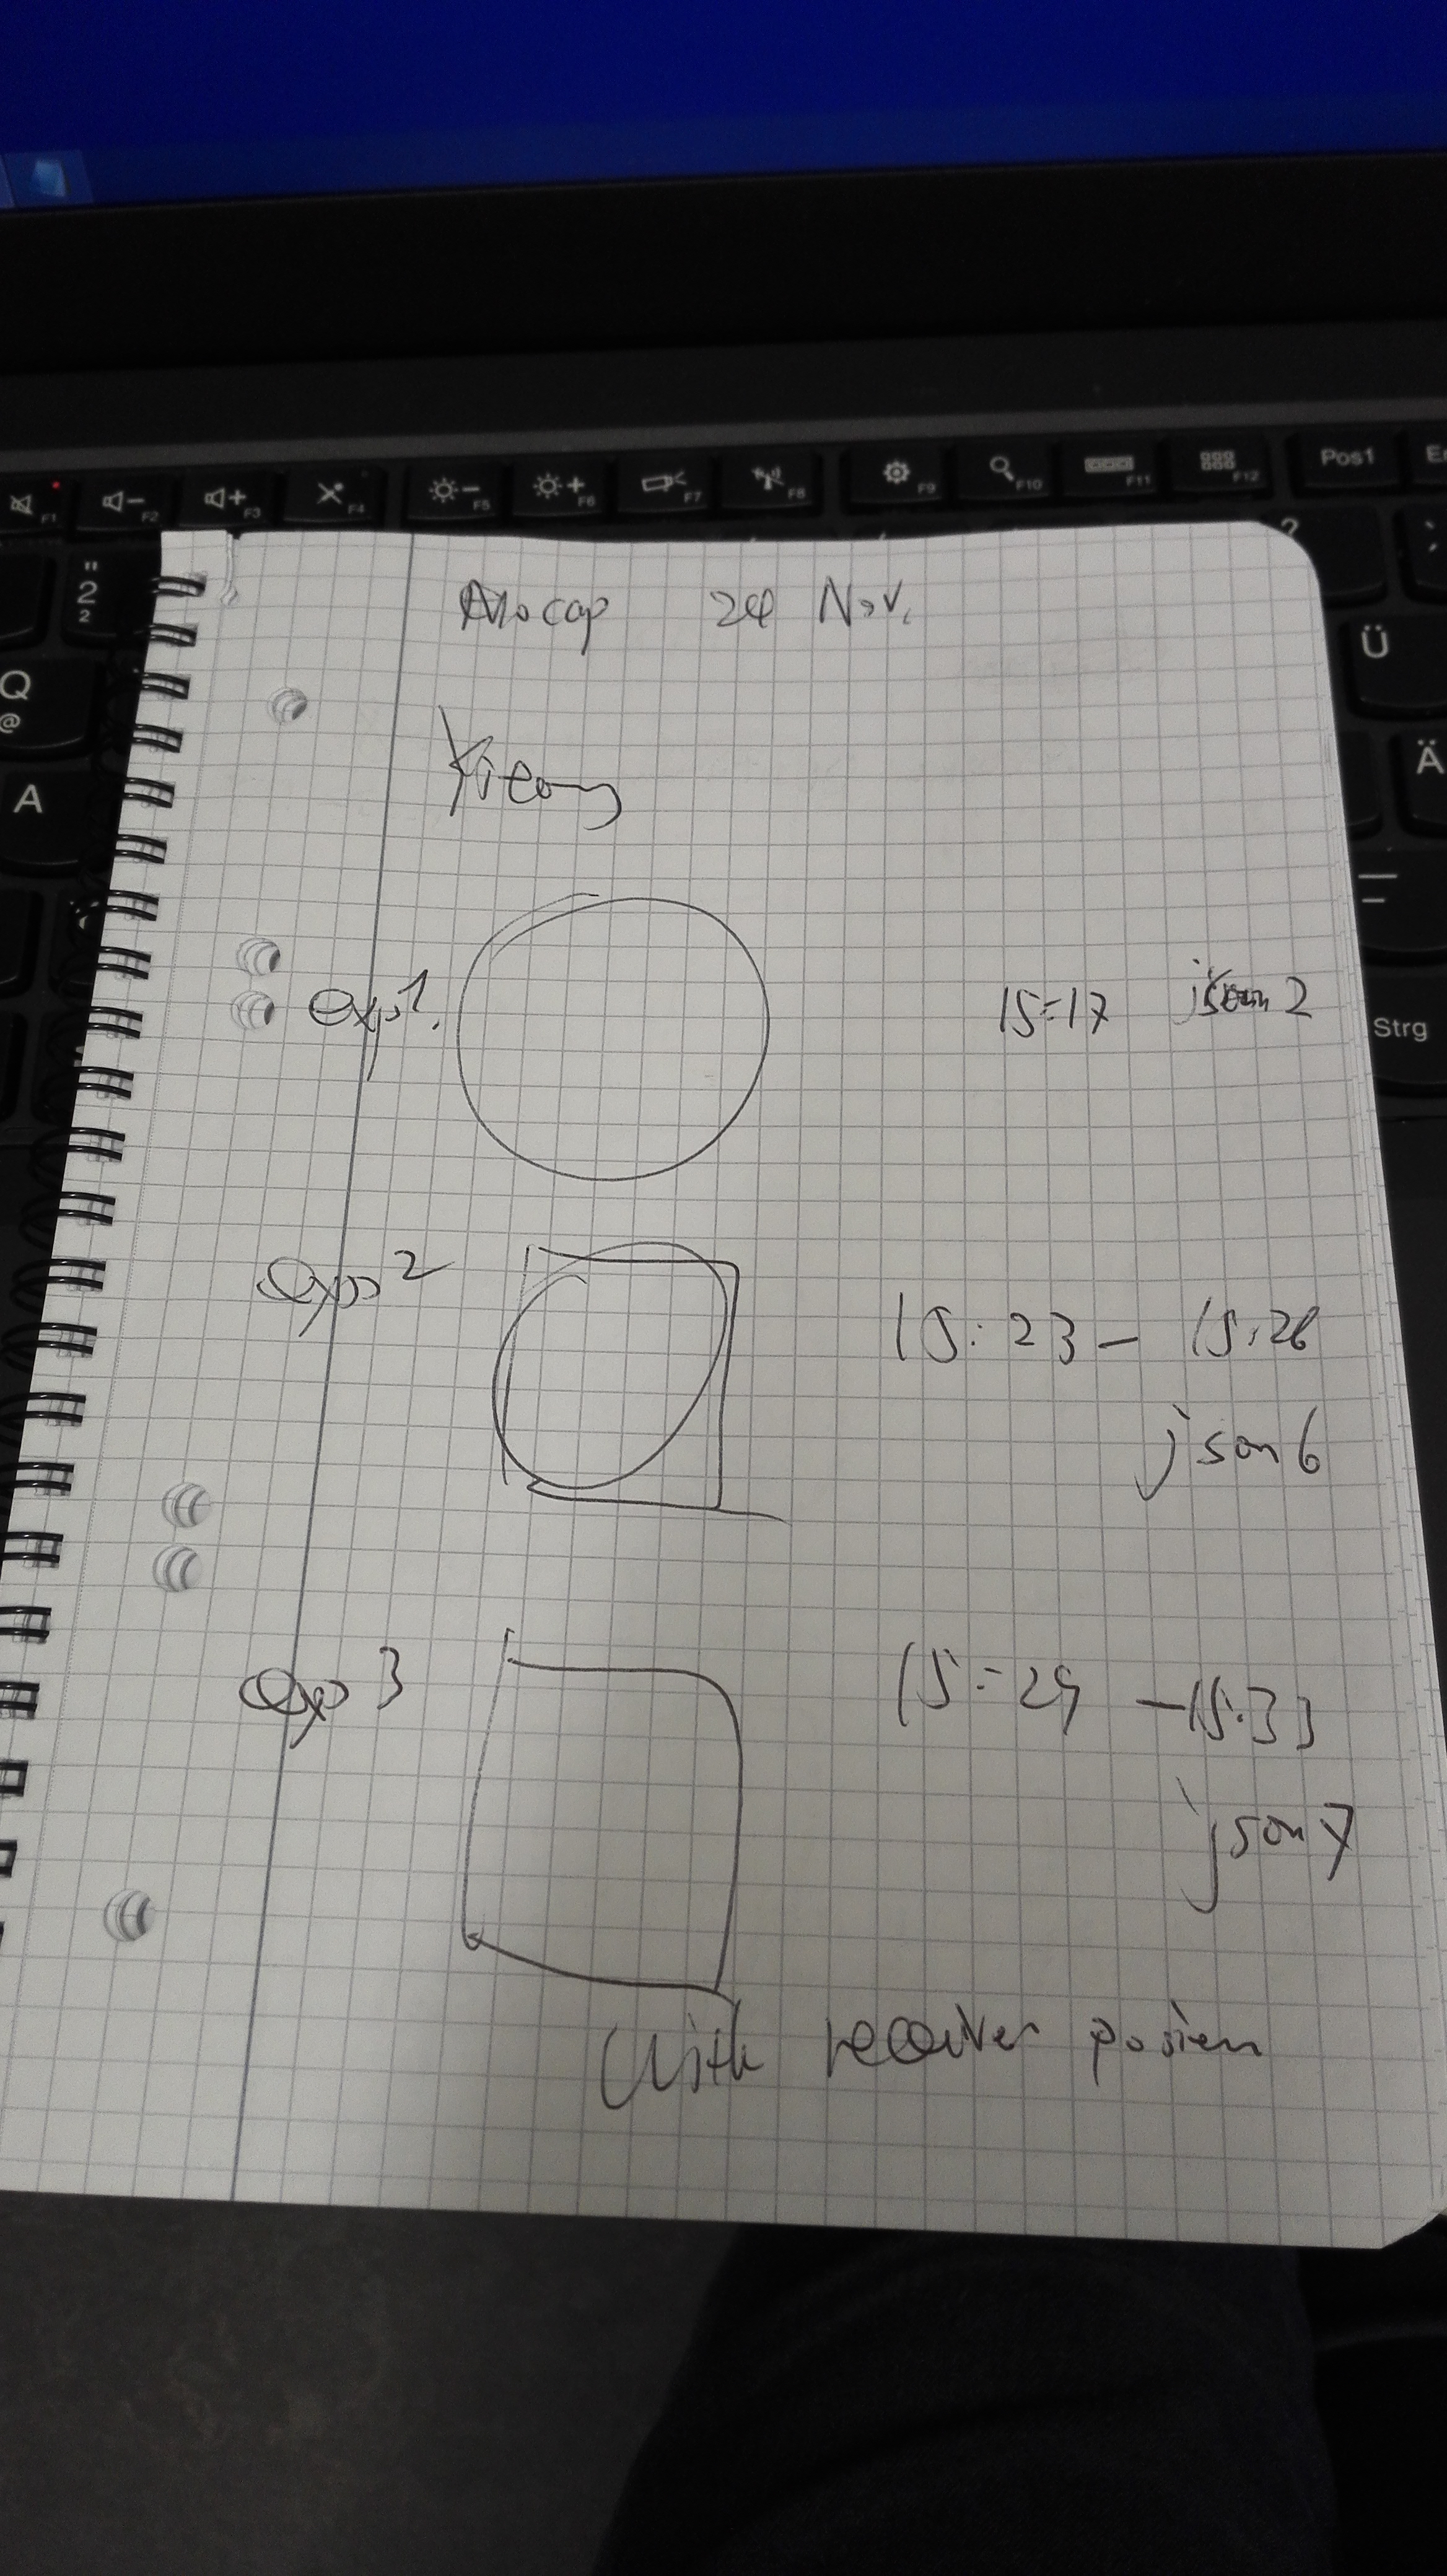 F1 F2 F3 F4 F5 F6 F7 F8 F9 F10 F11 F12 Pos1
" 2 2
?
Q @
Ü
A
Ä
Strg
Mocap 24 Nov.
exp1. 15:17 json2
exp2 15:23 - 15:28
json6
exp3 15:29 - 15:33
json7
With receiver